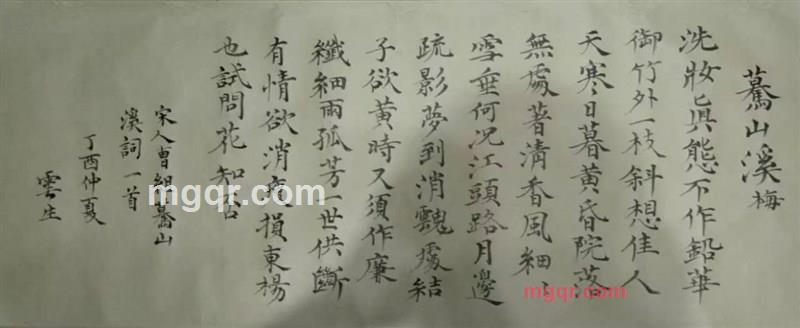 驀山溪 梅
洗妝眞態不作鉛華
御竹外一枝斜想佳人
天寒日暮黃昏院落
無處著清香風細
雪垂何況江頭路月邊
疏影夢到消魂處結
子欲黃時又須作廉
纖細雨孤芳一世供斷
有情欲消瘦損東楊
也試問花知否
宋人曾組驀山
溪詞一首
丁酉仲夏
雲生
mgqr.com
mgqr.com
mgqr.com